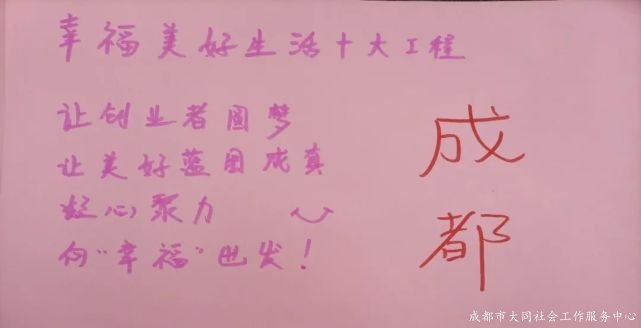 幸福美好生活十大工程
让创业者圆梦
让美好蓝图成真
凝心聚力
向“幸福”出发！
成
都
成都市大同社会工作服务中心